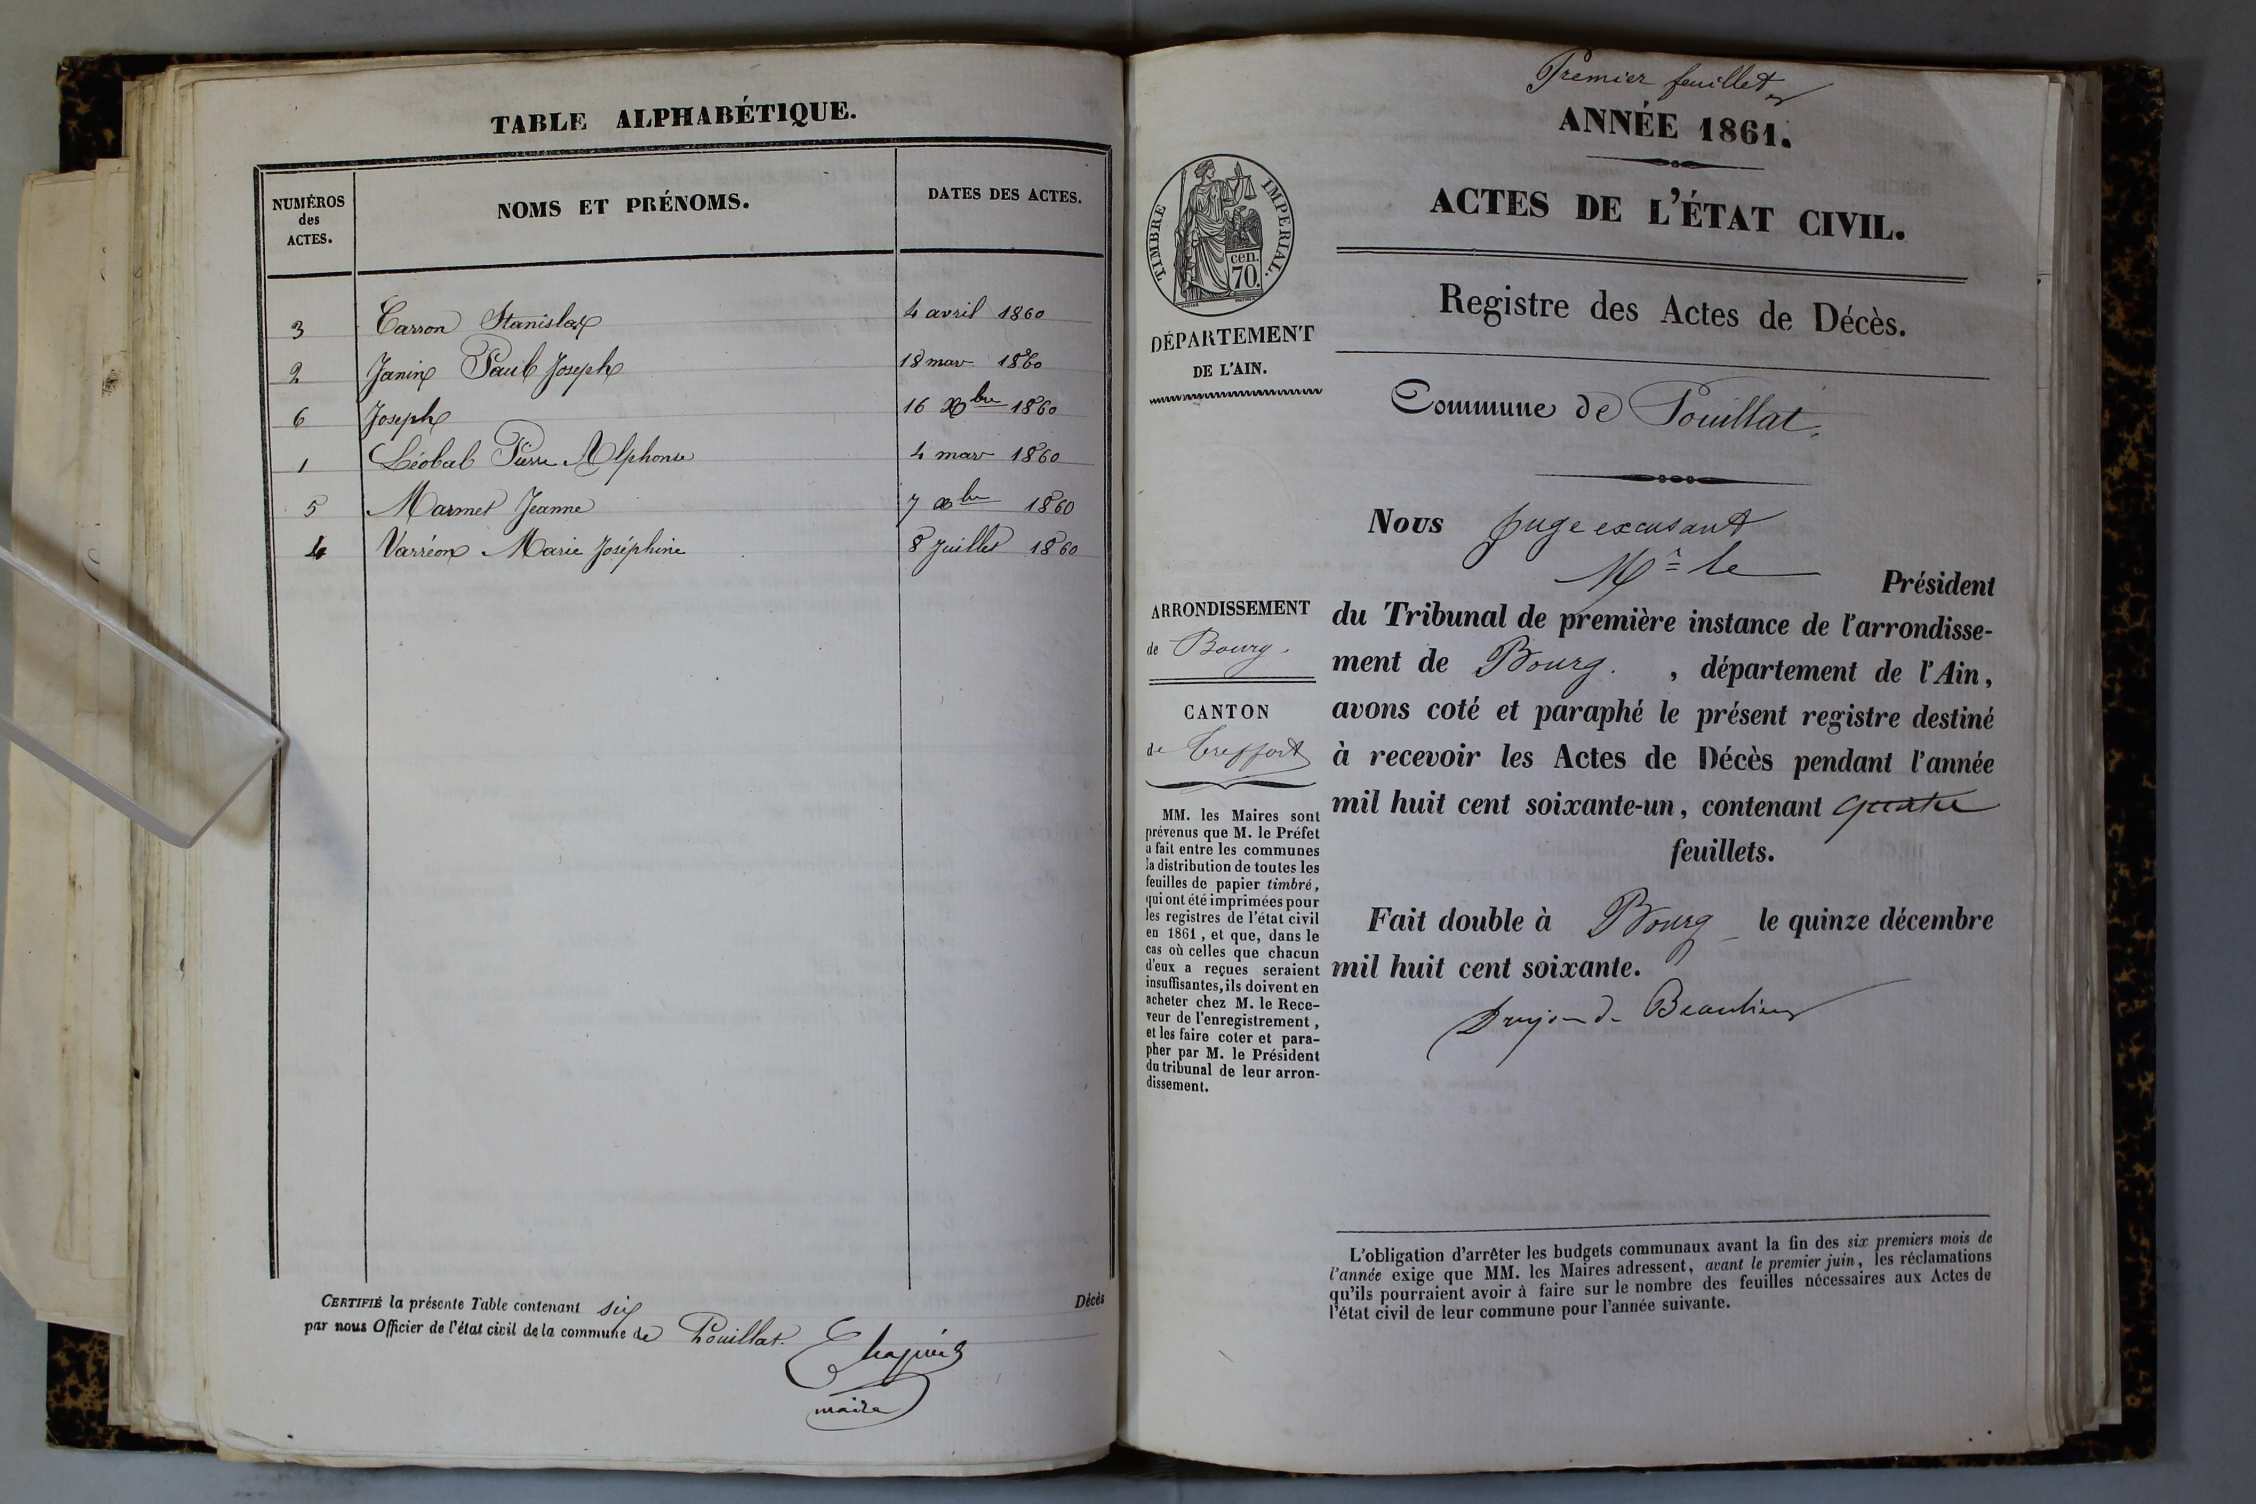 TABLE ALPHABÉTIQUE.
NUMÉROS des ACTES. NOMS ET PRÉNOMS. DATES DES ACTES.
3 Carron Stanislas 4 avril 1860
2 Janin Paul Joseph 18 mars 1860
6 Joseph 16 Xbre 1860
1 Léobal Pierre Alphonse 4 mars 1860
5 Marmet Jeanne 7 Xbre 1860
4 Varréon Marie Joséphine 8 Juillet 1860
CERTIFIÉ la présente Table contenant six Décès
par nous Officier de l'état civil de la commune de Pouillat.
maire
Premier feuillet
ANNÉE 1861.
ACTES DE L'ÉTAT CIVIL.
TIMBRE IMPERIAL.
cen.
70.
DÉPARTEMENT
DE L'AIN.
Registre des Actes de Décès.
Commune de Pouillat.
ARRONDISSEMENT
de Bourg.
CANTON
de Treffort
MM. les Maires sont
prévenus que M. le Préfet
a fait entre les communes
la distribution de toutes les
feuilles de papier timbré,
qui ont été imprimées pour
les registres de l'état civil
en 1861, et que, dans le
cas où celles que chacun
d'eux a reçues seraient
insuffisantes, ils doivent en
acheter chez M. le Rece-
veur de l'enregistrement,
et les faire coter et para-
pher par M. le Président
du tribunal de leur arron-
dissement.
Nous Juge excusant
Mr le Président
du Tribunal de première instance de l'arrondisse-
ment de Bourg. , département de l'Ain,
avons coté et paraphé le présent registre destiné
à recevoir les Actes de Décès pendant l'année
mil huit cent soixante-un, contenant quatre
feuillets.
Fait double à Bourg le quinze décembre
mil huit cent soixante.
de Beaulieu
L'obligation d'arrêter les budgets communaux avant la fin des six premiers mois de
l'année exige que MM. les Maires adressent, avant le premier juin, les réclamations
qu'ils pourraient avoir à faire sur le nombre des feuilles nécessaires aux Actes de
l'état civil de leur commune pour l'année suivante.